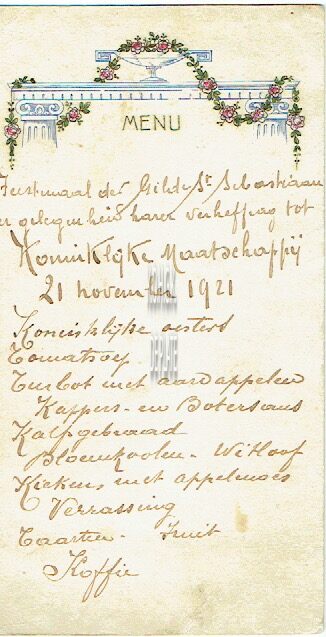 MENU
Feestmaal der Gilde St Sebastiaan
ter gelegenheid harer verheffing tot
Koninklijke Maatschappij
21 november 1921
Koninklijke oesters
Tomatsoep
Turbot met aardappelen
Kappers- en Botersaus
Kalfgebraad
Bloemkoolen - Witloof
Kiekens met appelmoes
Verrassing
Taarten - Fruit
Koffie